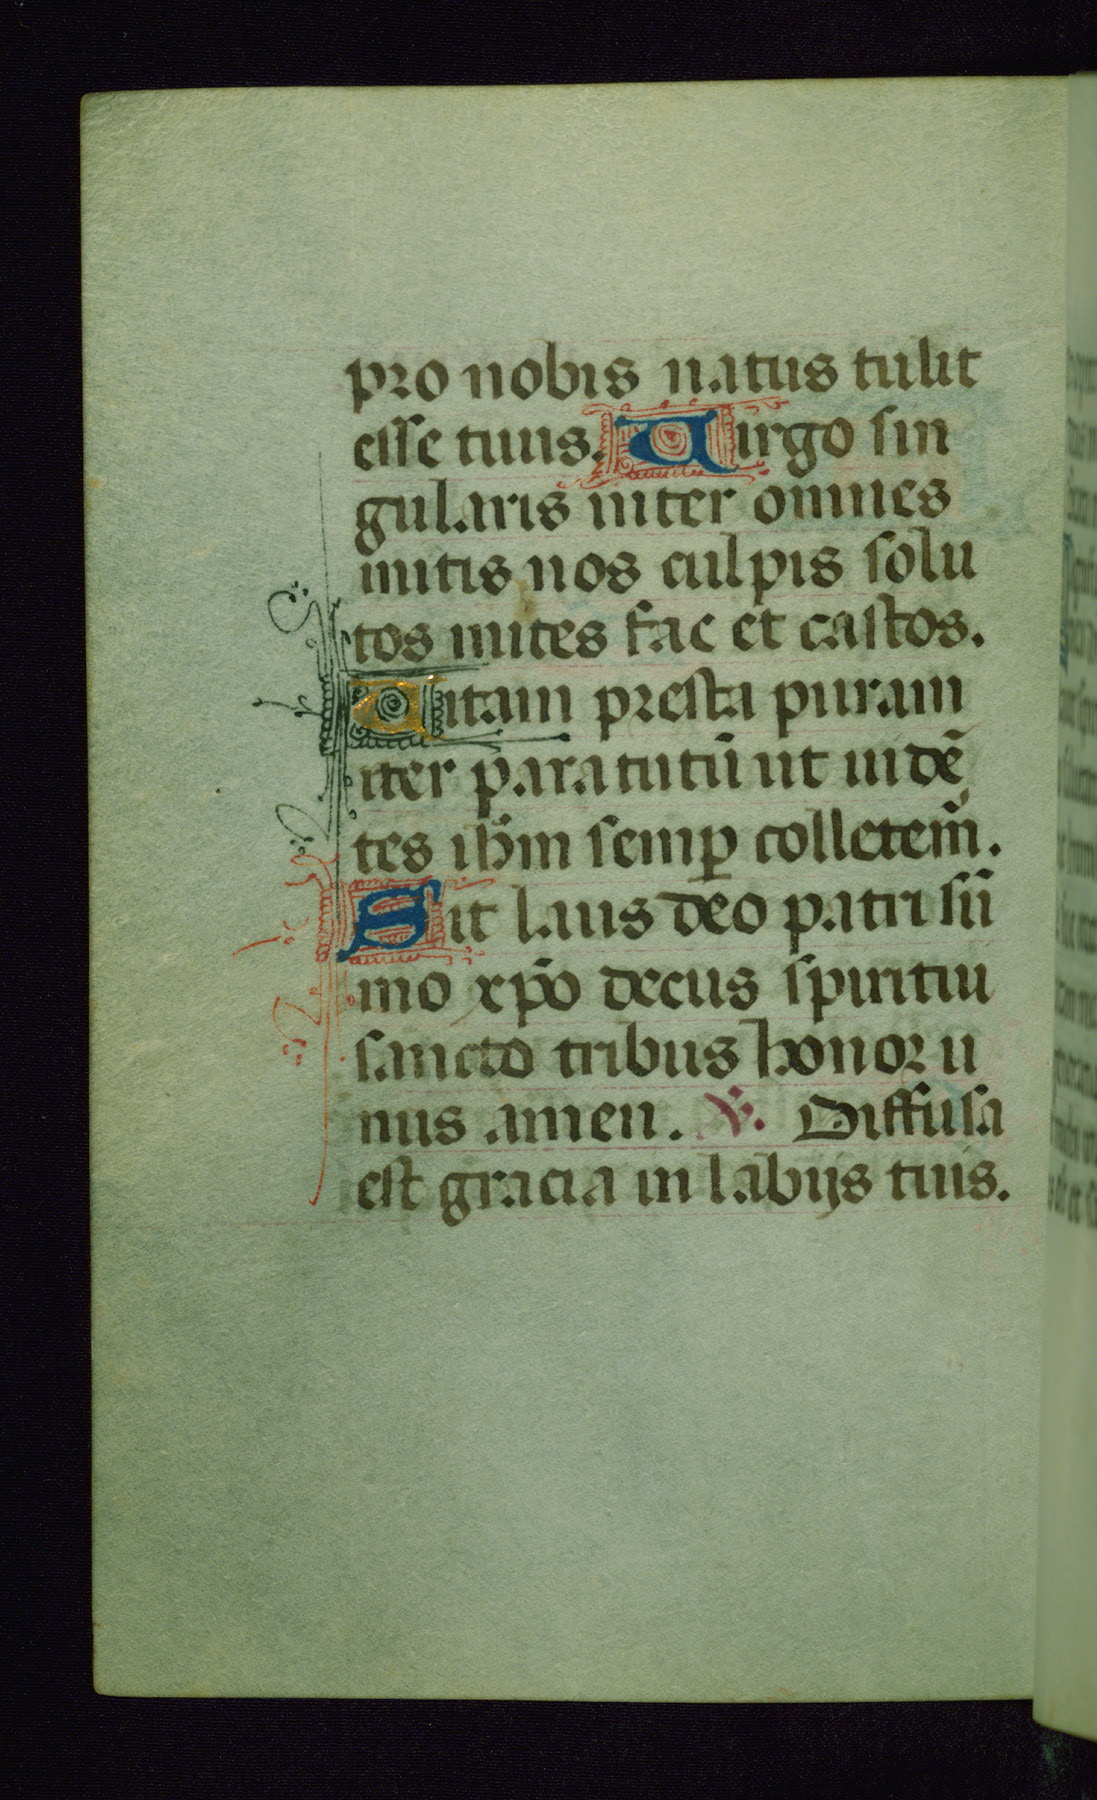 pro nobis natus tulit
esse tuus. Uirgo sin
gularis inter omnes
mitis nos culpis solu
tos mites fac et castos.
Uitam presta puram
iter para tutū ut uidē
tes ihm̄ semꝑ colletem̄.
Sit laus deo patri sū
mo xp̄o decus spiritiu
sancto tribus honor u
nus amen. ℣. Diffusa
est gracia in labijs tuis.